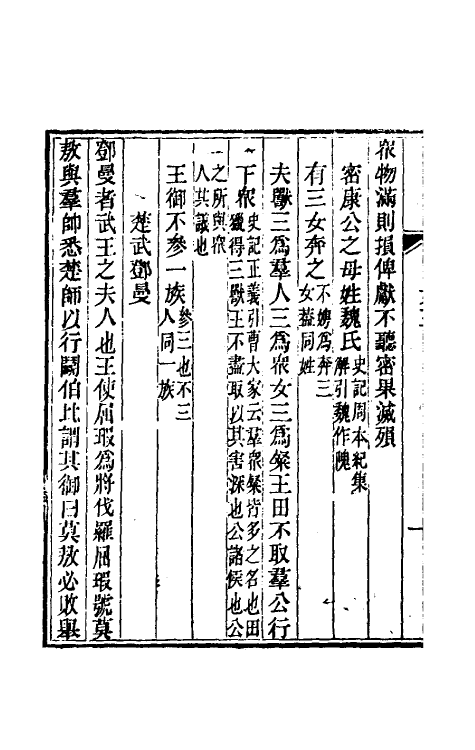 衆物滿則損俾獻不聽密果滅殞
密康公之母姓魏氏史記周本紀集
解引魏作隗
有三女奔之不娉爲奔三
女葢同姓
夫獸三爲羣人三爲衆女三爲粲王田不取羣公行
下衆史記正義引曹大家云羣衆粲皆多之名也田
獵得三獸王不盡取以其害深也公諸侯也公
之所與衆
人共議也
王御不參一族參三也不三
人同一族
楚武鄧曼
鄧曼者武王之夫人也王使屈瑕爲將伐羅屈瑕號莫
敖與羣師悉楚師以行鬭伯比謂其御曰莫敖必敗舉